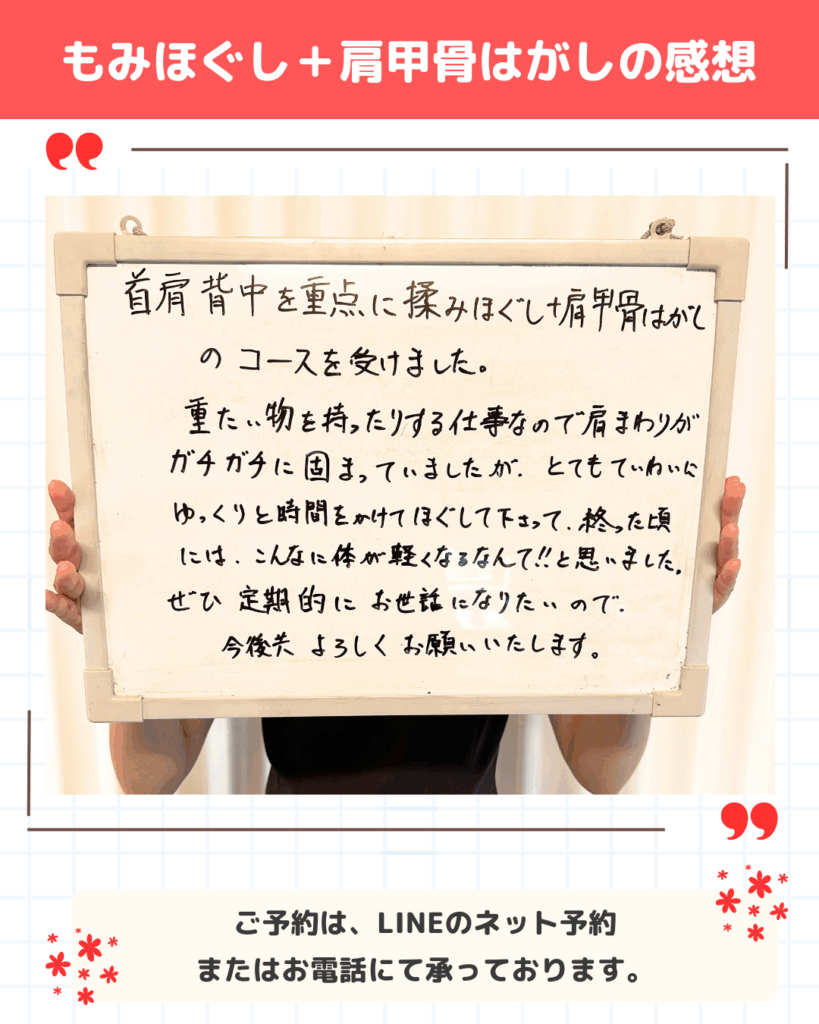 もみほぐし＋肩甲骨はがしの感想
首肩背中を重点に揉みほぐし+肩甲骨はがし
のコースを受けました。
重たい物を持ったりする仕事なので肩まわりが
ガチガチに固まっていましたが、とてもていねいに
ゆっくりと時間をかけてほぐして下さって、終った頃
には、こんなに体が軽くなるなんて!!と思いました。
ぜひ定期的にお世話になりたいので、
今後共よろしくお願いいたします。
ご予約は、LINEのネット予約
またはお電話にて承っております。